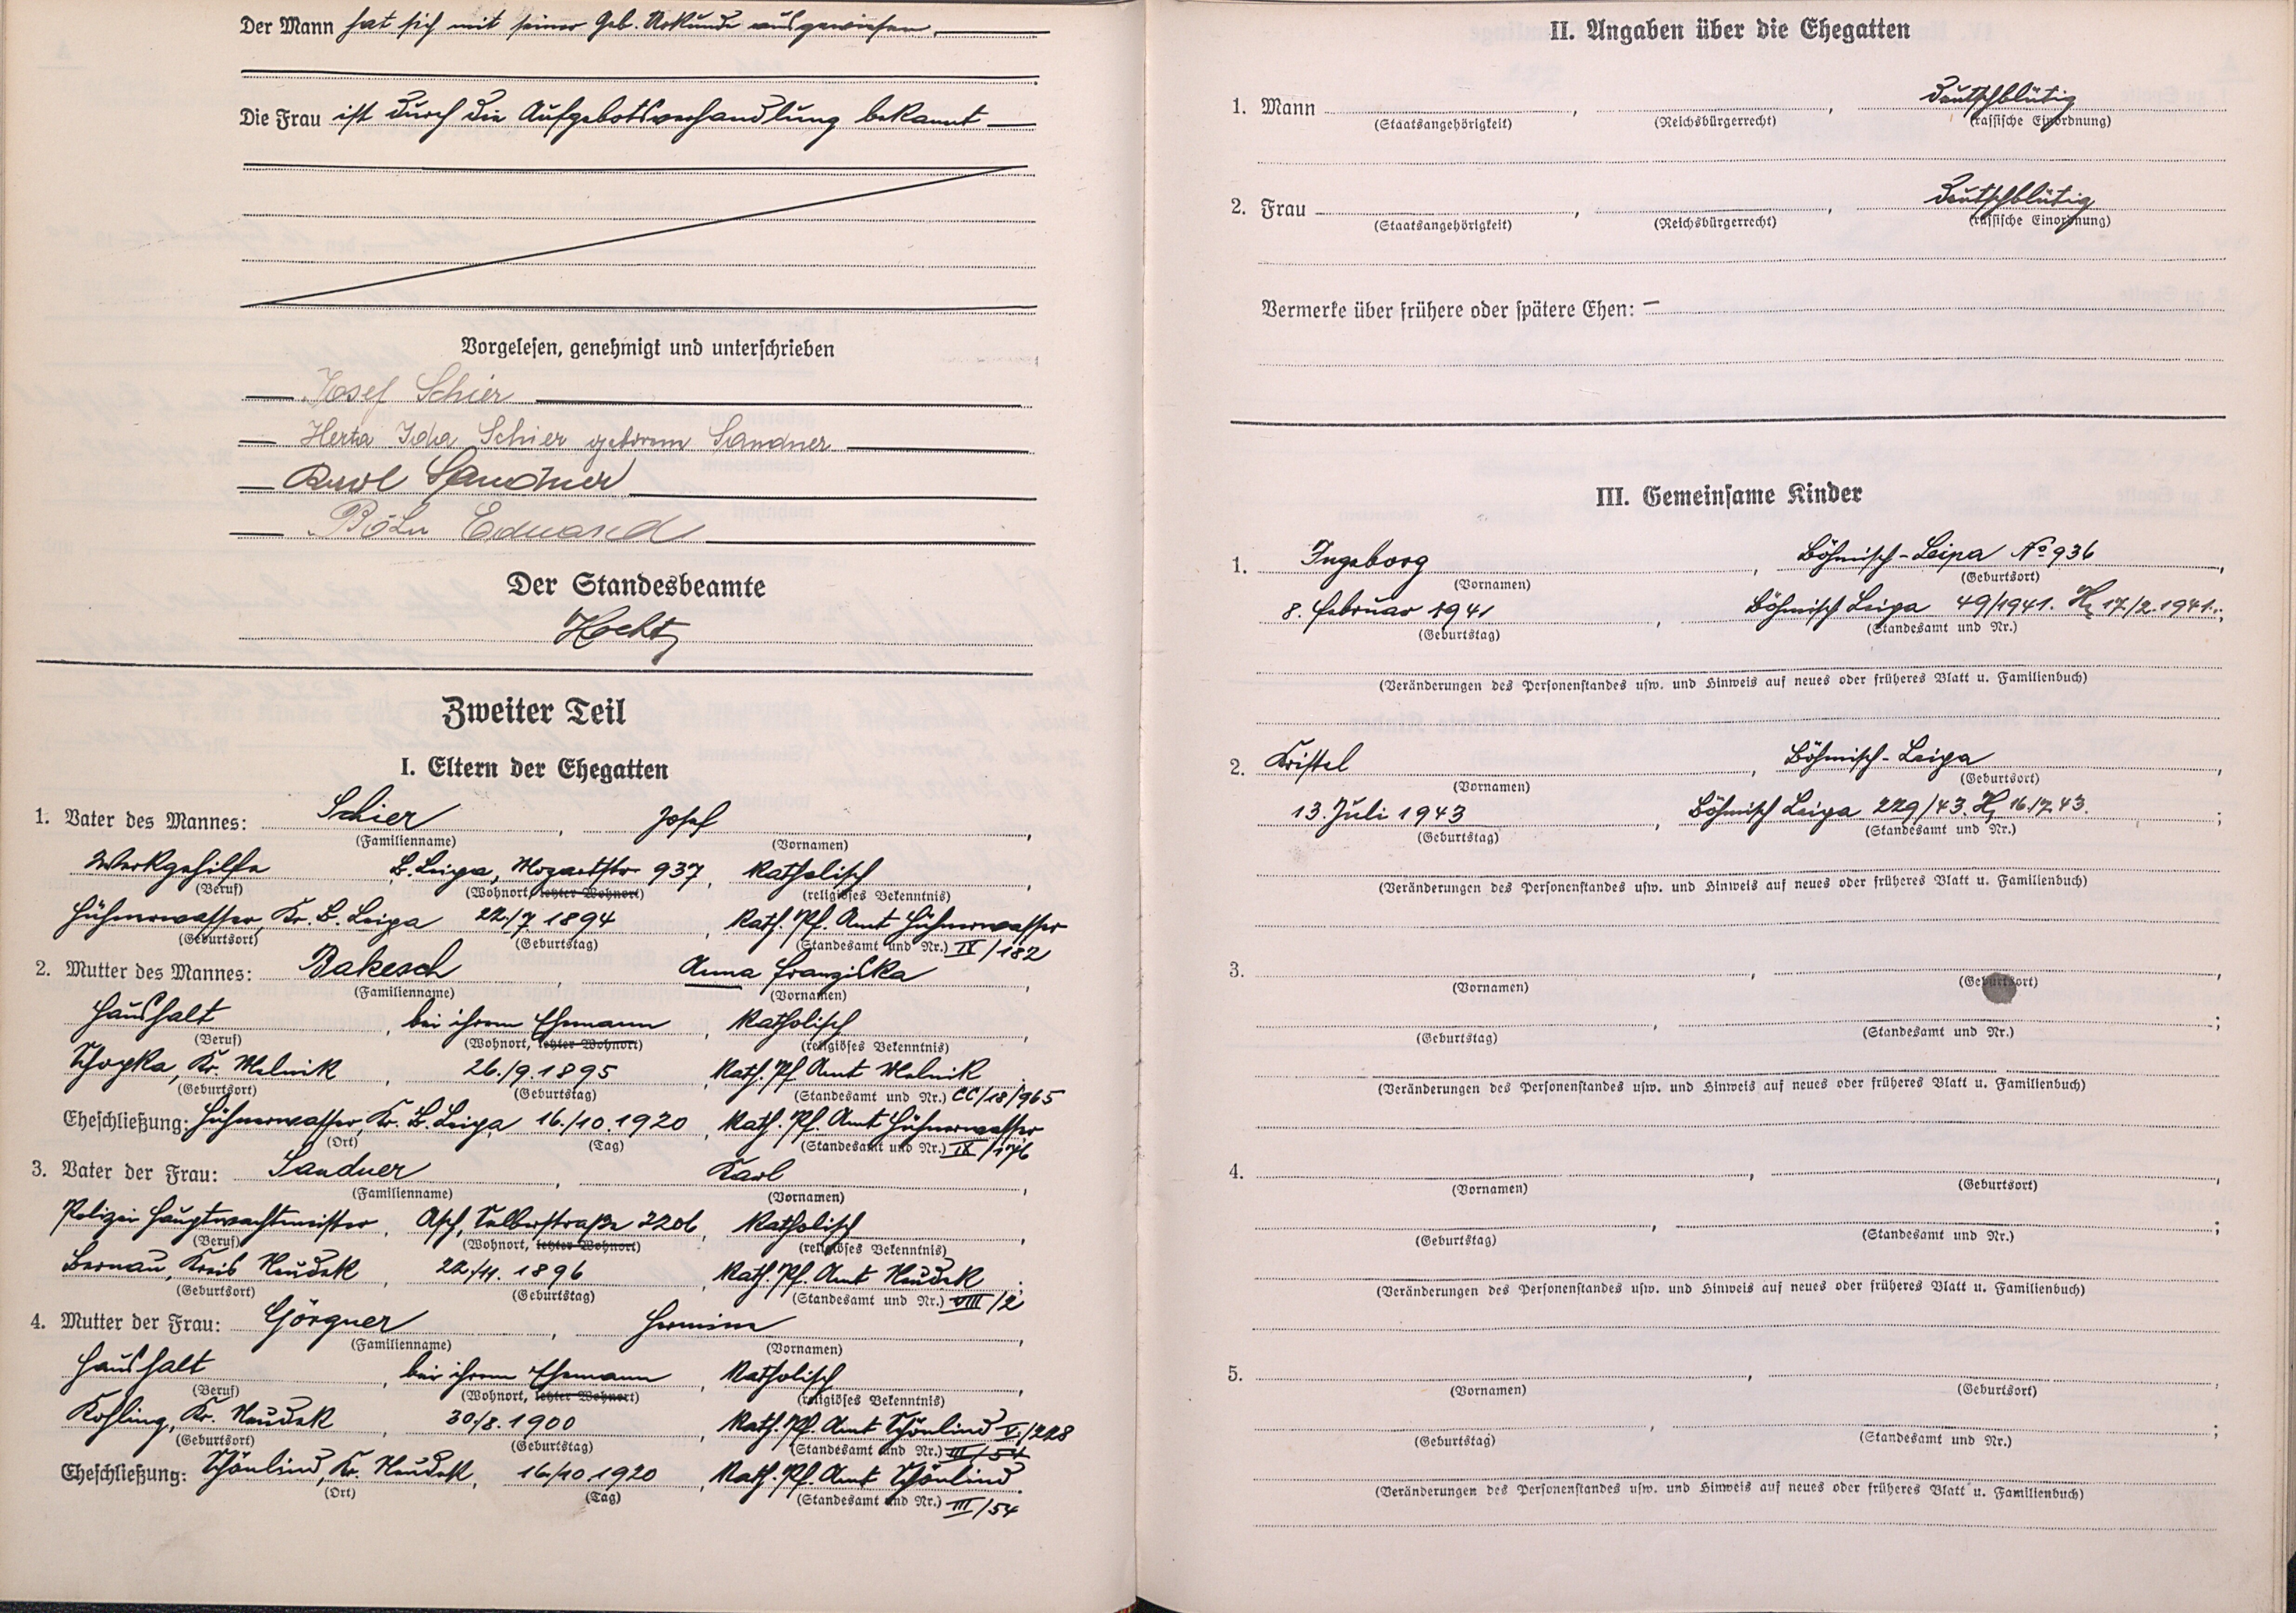 Der Mann hat sich mit seiner Geb. Urkunde ausgewiesen.
Die Frau ist durch die Aufgebotsverhandlung bekannt
Vorgelesen, genehmigt und unterschrieben
Josef Schier
Herta Ida Schier geborene Sandner
Karl Sandner
Eduard
Der Standesbeamte
Zweiter Teil
I. Eltern der Ehegatten
1. Vater des Mannes: Schier, Josef,
(Familienname) (Vornamen)
Werkgehilfe, B. Leipa, Mozartstr. 937, katholisch,
(Beruf) (Wohnort, letzter Wohnort) (religiöses Bekenntnis)
Hühnerwasser, Kr. B. Leipa 22./7. 1894, Kath. Pf. Amt Hühnerwasser
(Geburtsort) (Geburtstag) (Standesamt und Nr.) IX/182
2. Mutter des Mannes: Bakesch, Anna Franziska,
(Familienname) (Vornamen)
Haushalt, bei ihrem Ehemann, katholisch,
(Beruf) (Wohnort, letzter Wohnort) (religiöses Bekenntnis)
Schopka, Kr. Melnik, 26./9. 1895, Kath. Pf. Amt Melnik
(Geburtsort) (Geburtstag) (Standesamt und Nr.) CC/18/965
Eheschließung: Hühnerwasser, Kr. B. Leipa, 16./10. 1920, Kath. Pf. Amt Hühnerwasser
(Ort) (Tag) (Standesamt und Nr.) IX/176
3. Vater der Frau: Sandner, Karl,
(Familienname) (Vornamen)
Polizei Hauptwachtmeister, Asch, Selberstraße 2206, katholisch,
(Beruf) (Wohnort, letzter Wohnort) (religiöses Bekenntnis)
Bernau, Kreis Neudek, 1896, Kath. Pf. Amt Neudek;
(Geburtsort) (Geburtstag) (Standesamt und Nr.) VIII/2
4. Mutter der Frau: Görgner, Hermine,
(Familienname) (Vornamen)
Haushalt, bei ihrem Ehemann, katholisch,
(Beruf) (Wohnort, letzter Wohnort) (religiöses Bekenntnis)
Kohling, Kr. Neudek, 30./8. 1900, Kath. Pf. Amt Schönlind V./228
(Geburtsort) (Geburtstag) (Standesamt und Nr.) III/54
Eheschließung: Schönlind, Kr. Neudek, 16./10. 1920, Kath. Pf. Amt Schönlind.
(Ort) (Tag) (Standesamt und Nr.) III/54
II. Angaben über die Ehegatten
1. Mann , , deutschblütig
(Staatsangehörigkeit) (Reichsbürgerrecht) (rassische Einordnung)
2. Frau , , deutschblütig
(Staatsangehörigkeit) (Reichsbürgerrecht) (rassische Einordnung)
Vermerke über frühere oder spätere Ehen: —
III. Gemeinsame Kinder
1. Ingeborg, Böhmisch-Leipa No 936,
(Vornamen) (Geburtsort)
8. Februar 1941, Böhmisch Leipa 49/1941. H, 17/2. 1941.;
(Geburtstag) (Standesamt und Nr.)
(Veränderungen des Personenstandes usw. und Hinweis auf neues oder früheres Blatt u. Familienbuch)
2. Kristel, Böhmisch-Leipa,
(Vornamen) (Geburtsort)
13. Juli 1943, Böhmisch Leipa 229/43. H, 16./7. 43.;
(Geburtstag) (Standesamt und Nr.)
(Veränderungen des Personenstandes usw. und Hinweis auf neues oder früheres Blatt u. Familienbuch)
3. , ,
(Vornamen) (Geburtsort)
, ;
(Geburtstag) (Standesamt und Nr.)
(Veränderungen des Personenstandes usw. und Hinweis auf neues oder früheres Blatt u. Familienbuch)
4. , ,
(Vornamen) (Geburtsort)
, ;
(Geburtstag) (Standesamt und Nr.)
(Veränderungen des Personenstandes usw. und Hinweis auf neues oder früheres Blatt u. Familienbuch)
5. , ,
(Vornamen) (Geburtsort)
, ;
(Geburtstag) (Standesamt und Nr.)
(Veränderungen des Personenstandes usw. und Hinweis auf neues oder früheres Blatt u. Familienbuch)